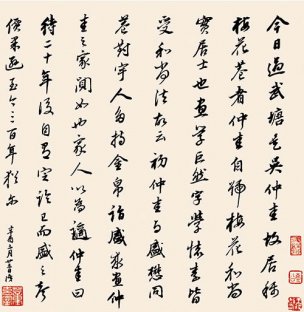 今日過武塘是吳仲圭故居稱
梅花菴者仲圭自號梅花和尚
實居士也畫學巨然字學懷素皆
受和尚法故云初仲圭與盛懋同
巷對宇人多持金帛詣盛求畫仲
圭之家闃如也家人以為適仲圭曰
待二十年後自有定論已而盛之
價果遜至今三百年猶爾
辛酉三月廿